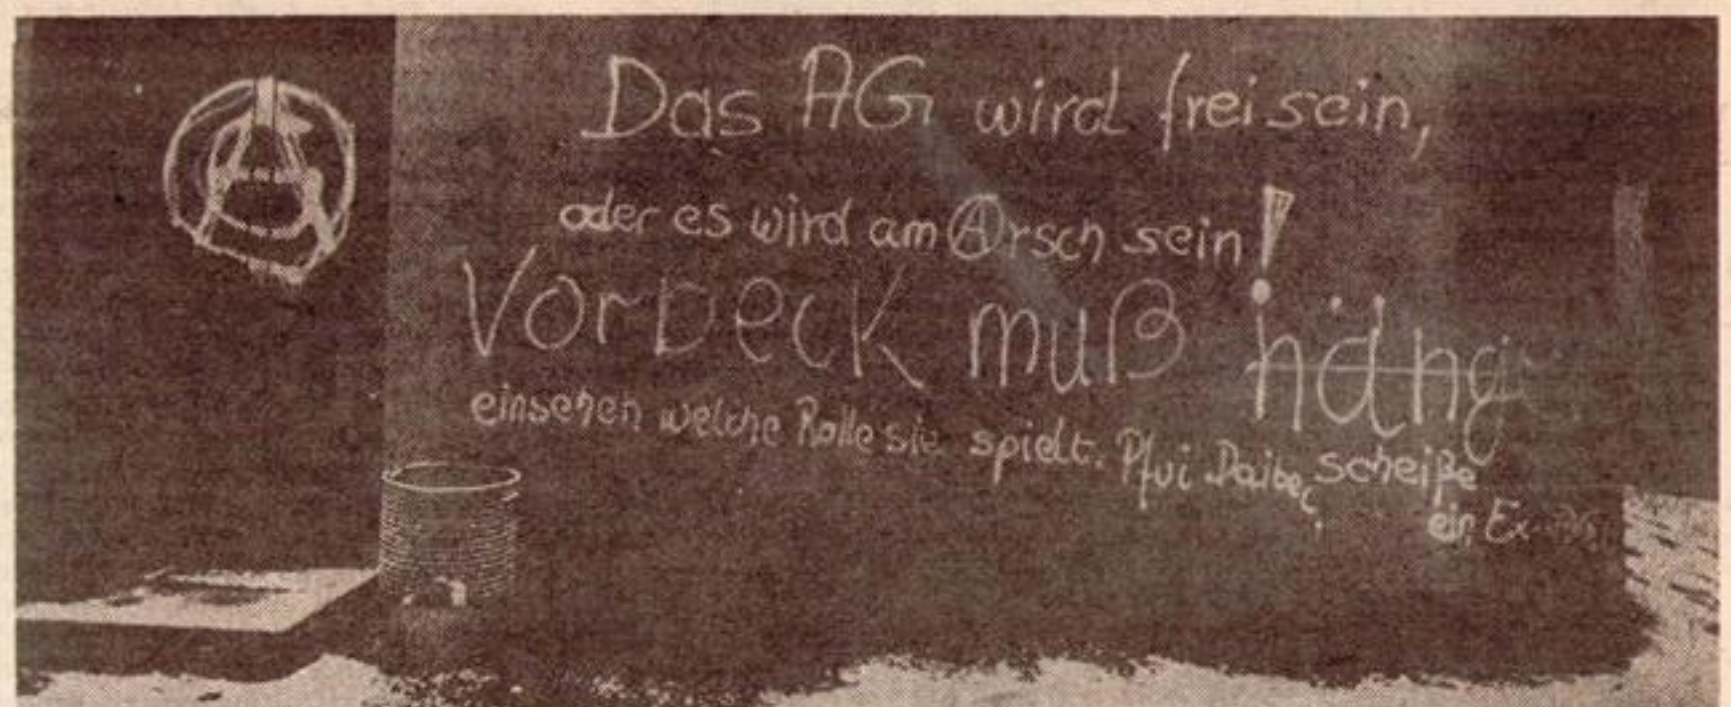 Das AG wird frei sein,
oder es wird am Arsch sein!
Vorbeck muß häng
einsehen welche Rolle sie spielt. Pfui Daibel, scheiße
ein Ex